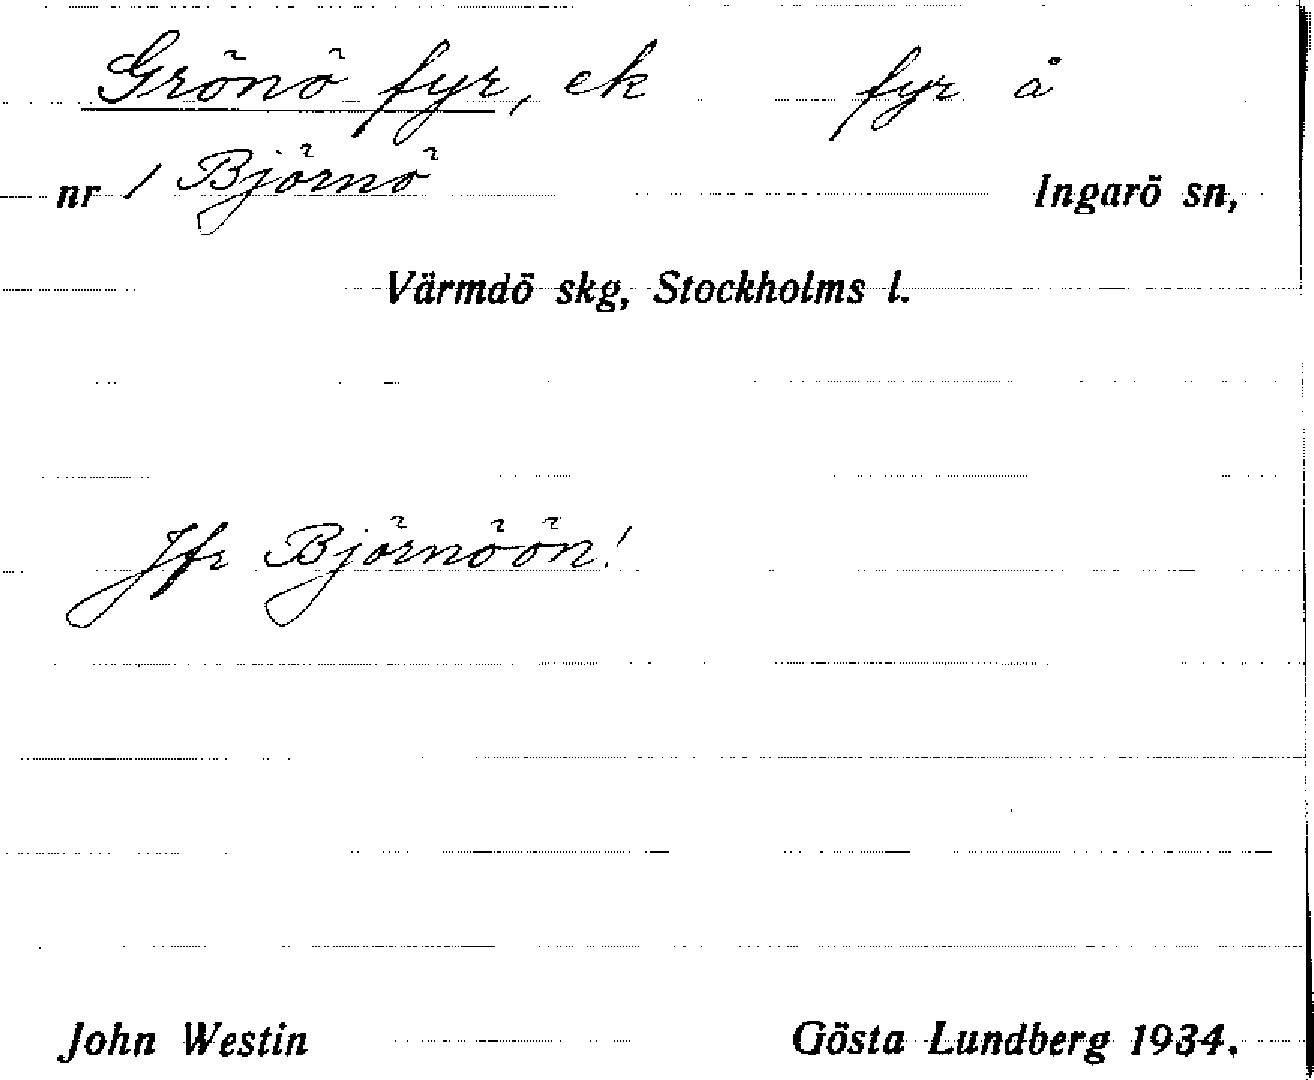 Grönö fyr, ek fyr å
nr 1 Björnö Ingarö sn,
Värmdö skg, Stockholms l.
Jfr Björnöön!
John Westin Gösta Lundberg 1934.